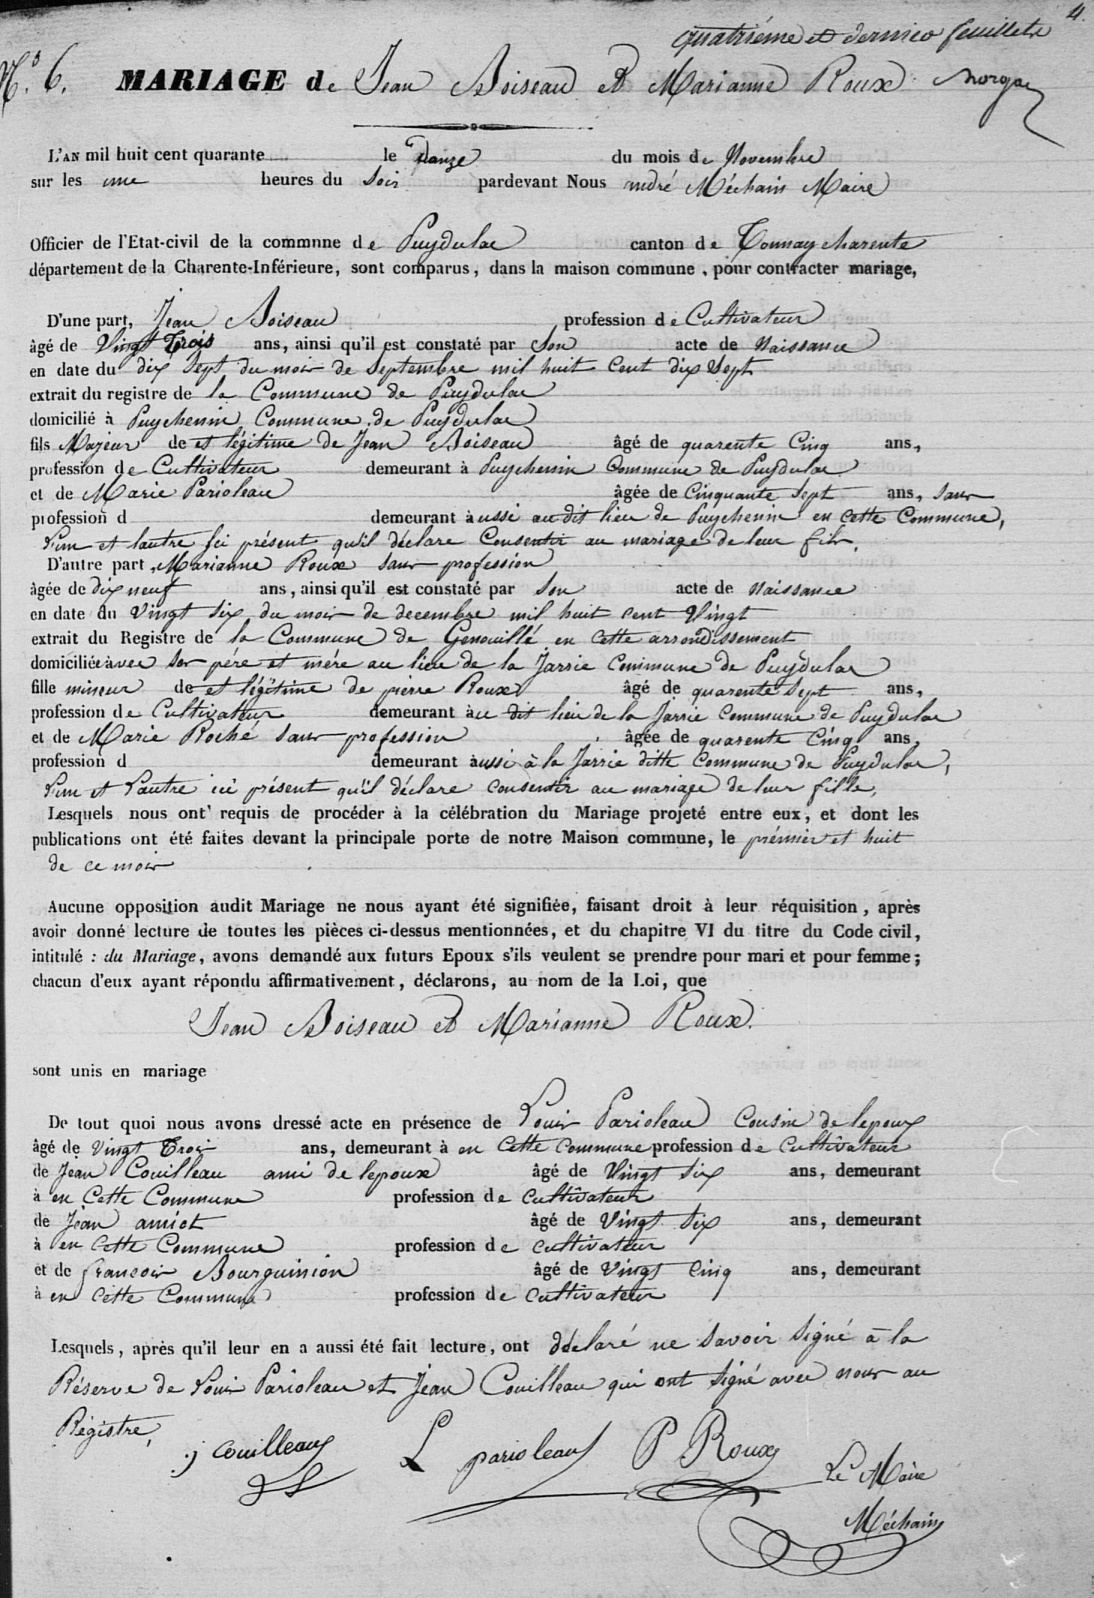 4.
quatriéme et dernier feuillets
N.° 6. MARIAGE de Jean Boiseau et Marianne Roux
L'AN mil huit cent quarante le onze du mois de Novembre
sur les une heures du soir pardevant Nous andré Méchain Maire
Officier de l'Etat-civil de la commnne de Puydulac canton de Tonnaycharente
département de la Charente-Inférieure, sont comparus, dans la maison commune, pour contracter mariage,
D'une part, Jean Boiseau profession de Cultivateur
âgé de Vingt trois ans, ainsi qu'il est constaté par son acte de Naissance
en date du dix sept du mois de Septembre mil huit cent dix sept
extrait du registre de la Commune de Puydulac
domicilié à Puychenin Commune de Puydulac
fils Majeur de et légitime de Jean Boiseau âgé de quarente Cinq ans,
profession de Cultivateur demeurant à Puychenin Commune de Puydulac
et de Marie Parioleau âgée de Cinquante sept ans, sans
profession d demeurant à aussi au dit lieu de Puychenin en cette Commune,
l'un et lautre ici présent qu'il déclare Consentir au mariage de leur fils.
D'autre part, Marianne Roux sans profession
âgée de dix neuf ans, ainsi qu'il est constaté par son acte de Naissance
en date du Vingt six du mois de decembre mil huit cent Vingt
extrait du Registre de la Commune de Genouillé en cette arrondissement
domiciliée avec ses pére et mére au lieu de la Jarrie Commune de Puydulac
fille mineur de et légitime de pierre Roux âgé de quarente sept ans,
profession de Cultivateur demeurant à au dit lieu de la Jarrie Commune de Puydulac
et de Marie Roché sans profession âgée de quarente Cinq ans,
profession d demeurant aussi à la Jarrie ditte Commune de Puydulac,
l'un et l'autre ici présent qu'il déclare consentir au mariage de leur fille.
Lesquels nous ont requis de procéder à la célébration du Mariage projeté entre eux, et dont les
publications ont été faites devant la principale porte de notre Maison commune, le prémier et huit
de ce mois
Aucune opposition audit Mariage ne nous ayant été signifiée, faisant droit à leur réquisition, après
avoir donné lecture de toutes les pièces ci-dessus mentionnées, et du chapitre VI du titre du Code civil,
intitulé : du Mariage, avons demandé aux futurs Epoux s'ils veulent se prendre pour mari et pour femme;
chacun d'eux ayant répondu affirmativement, déclarons, au nom de la Loi, que
Jean Boiseau et Marianne Roux.
sont unis en mariage
De tout quoi nous avons dressé acte en présence de Louis Parioleau Cousin de lepoux
âgé de Vingt trois ans, demeurant à en Cette Commune profession de Cultivateur
de Jean Couilleau ami de lepoux âgé de Vingt six ans, demeurant
à en Cette Commune profession de Cultivateur
de Jean amiot âgé de Vingt six ans, demeurant
à en Cette Commune profession de cultivateur
et de francois Bourguinion âgé de Vingt Cinq ans, demeurant
à en Cette Commune profession de cultivateur
Lesquels, après qu'il leur en a aussi été fait lecture, ont déclaré ne savoir signé à la
Réserve de Louis Parioleau et Jean Couilleau qui ont signé avec nous au
Régistre,
j couilleau L parioleau P Roux Le Maire
Méchain